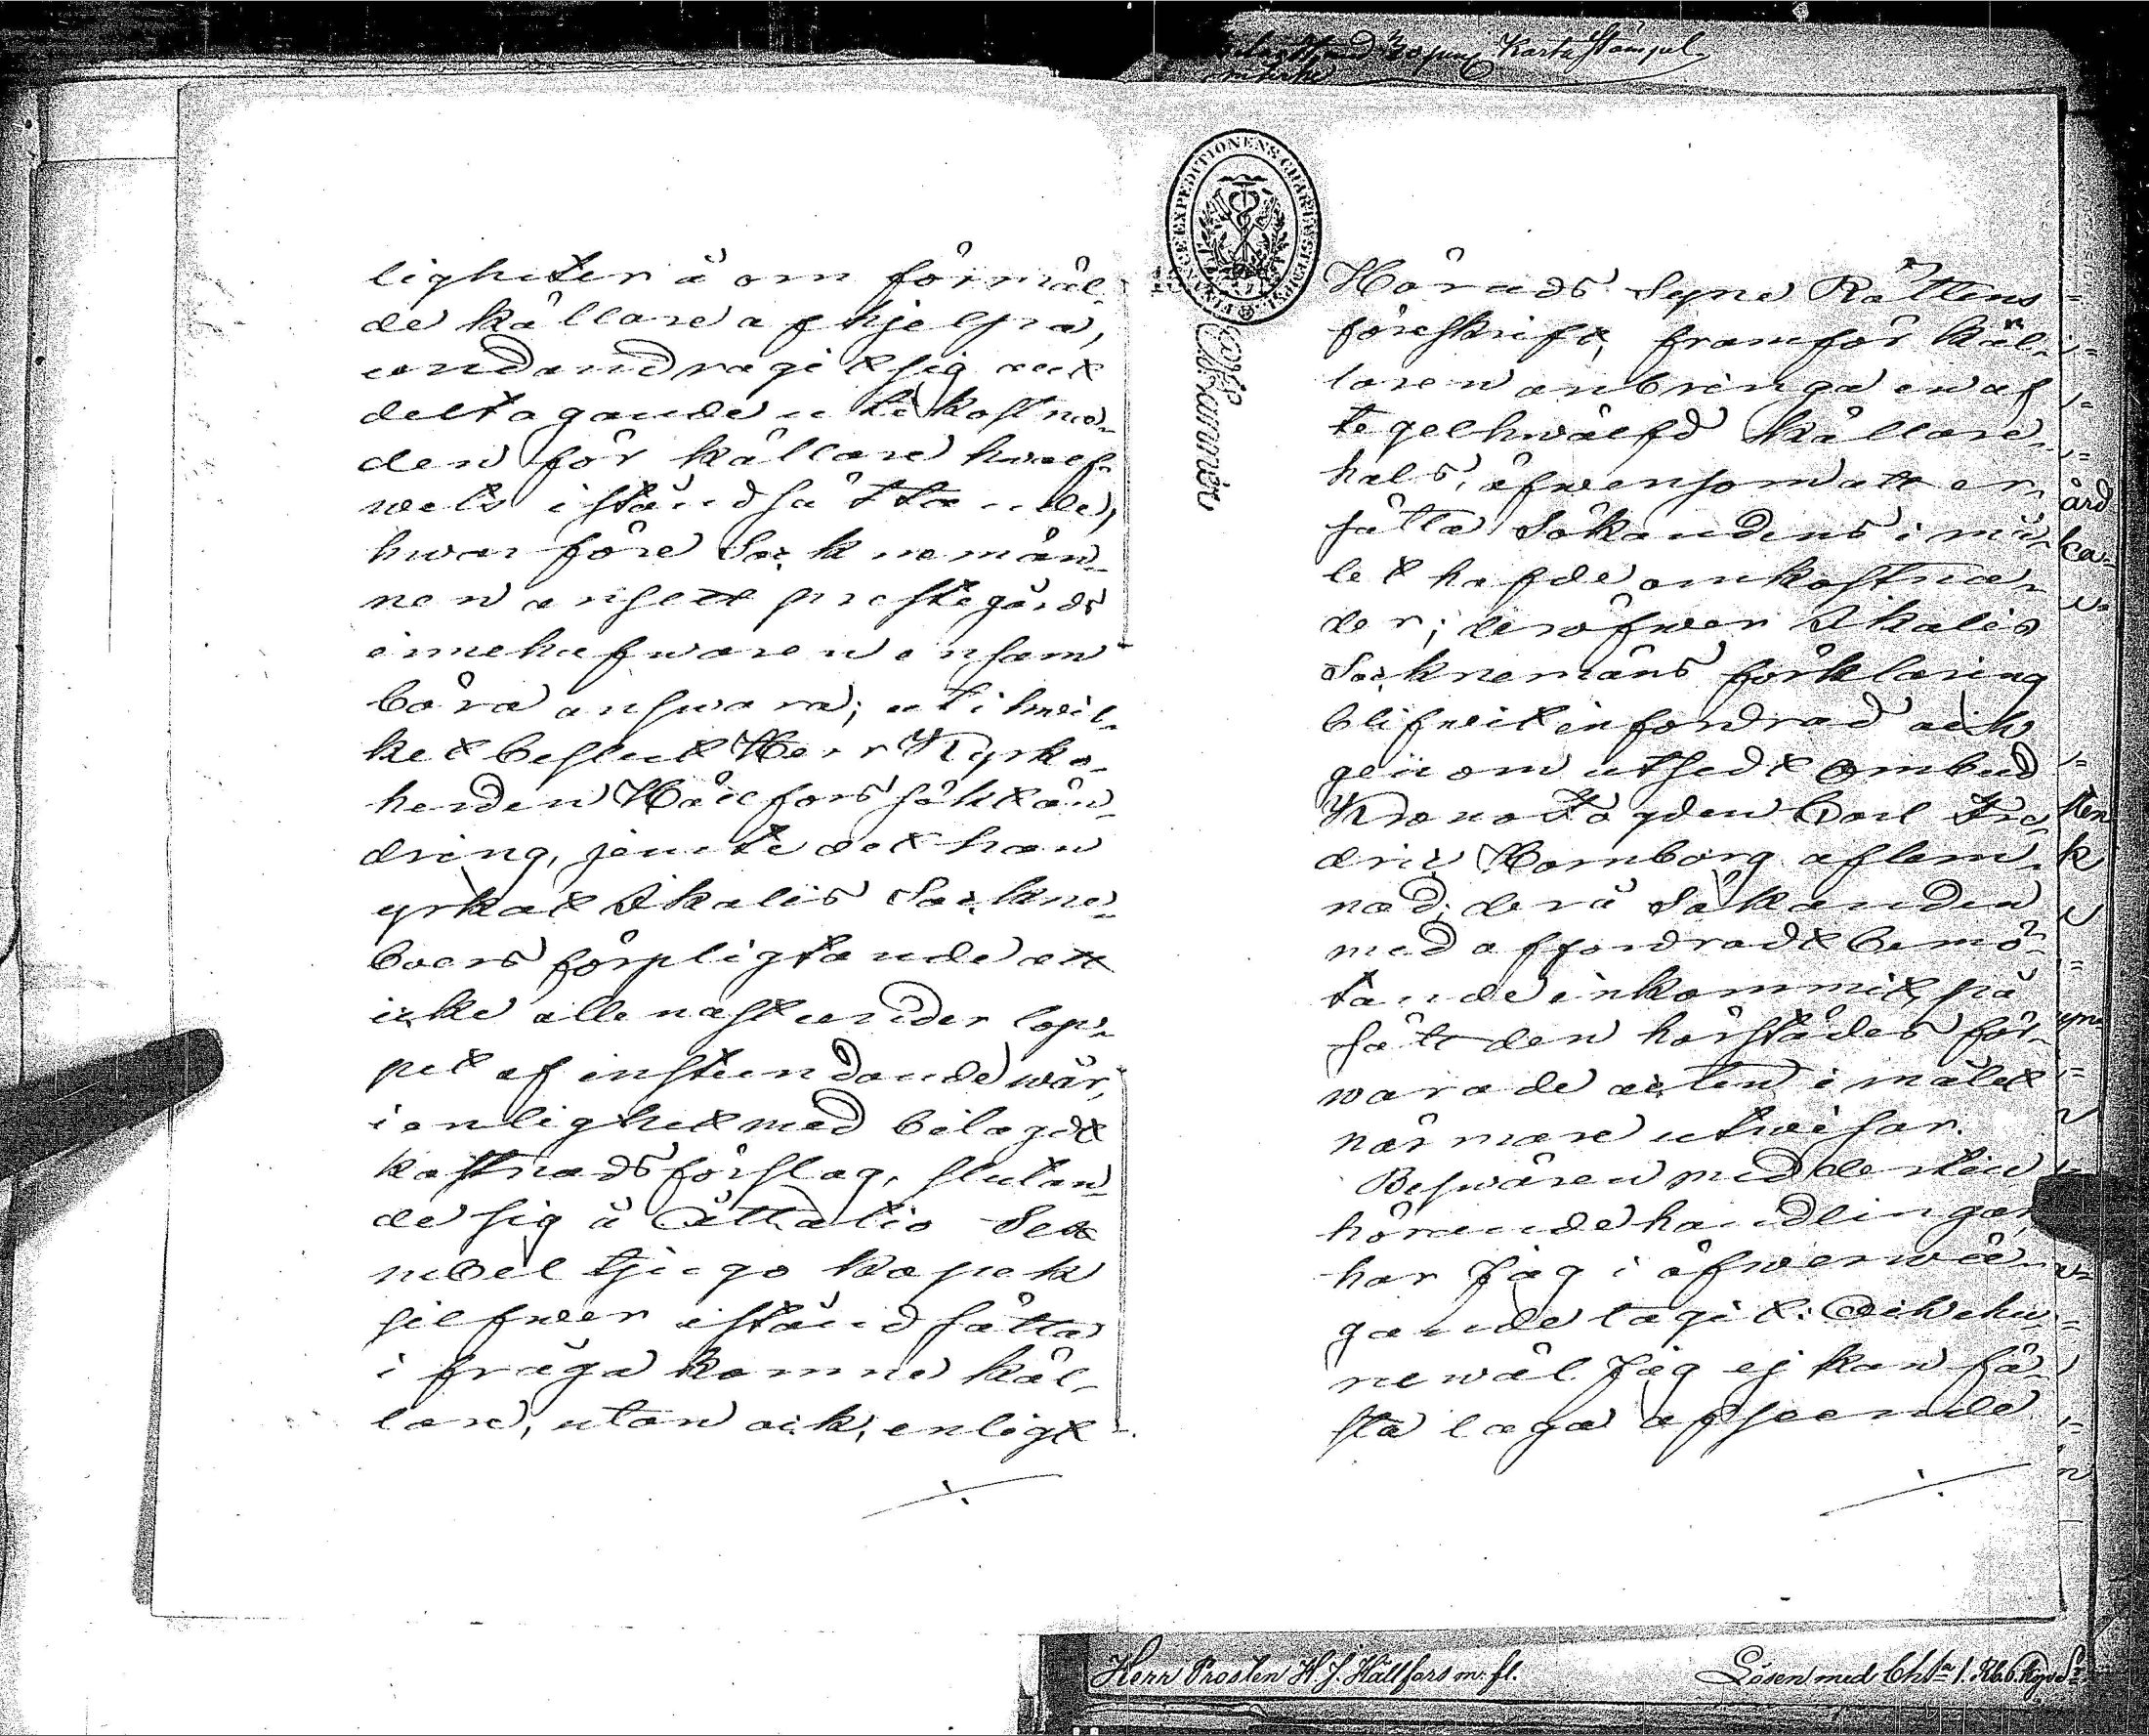 Karta Stämpel
ligheter å om förmäl-
de källare afhjelpa,
undandragit sig allt
deltagande uti kostna-
den för källare hwalf-
wets iståndsättande,
hwarföre Socknemän-
nen ansett prestegårds
innehafwaren ensam
böra answara; uti hwil-
ket beslut Herr Kyrko-
herden Hällfors sökt än-
dring, jemte det han
yrkat Ikalis Sockne-
boers förpligtande att
icke allenast under lop-
pet af instundande wår,
i enlighet med bilagdt
kostnadsförslag, slutan-
de sig å Åttatio Sex
rubel tjugo kopek
silfwer iståndsätta
i fråga komne käl-
lare, utan ock, enligt
FINANCE EXPEDITIONENS CHARTÆ
Härads Syne Rättens
föreskrift, framför käl-
laren anbringa en af
tegel hwälfd källare-
hals, äfwensom att er-
sätta Sökandens i må-
let hafde omkostna-
der; deröfwer Ikalis
Socknemäns förklaring
blifwit infordrad och
genom utsedt ombud
Kronofogden Carl Fre-
dric Hornborg aflem-
nad, derå Sökanden
med affordradt bemö-
tande inkommit, på
sätt den härstädes för-
warade acten i målet
närmare utwisar.
Beswären med dertill
hörande handlingar
har Jag i öfwerwä-
gande tagit: Och ehu-
ruwäl Jag ej kan fä-
sta laga afseende
ård
ka-
ten
k
Herr Prosten H. J. Hällfors m. fl.
Lösen med Chta 1. Rb. 6. Kop. Sr